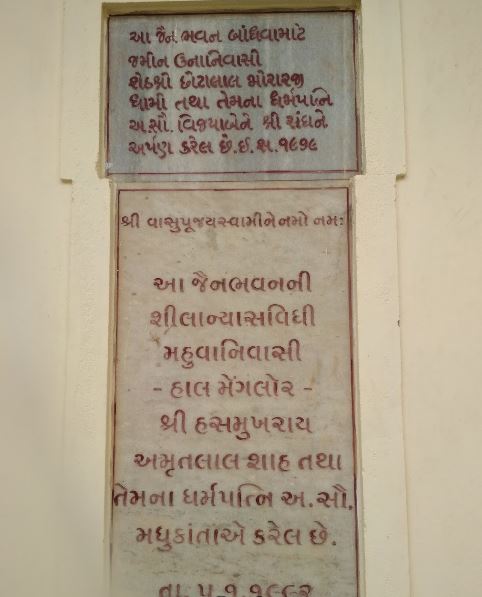 આ જૈન ભવન બાંધવામાટે
જમીન ઉનાનિવાસી
શેઠશ્રી છોટાલાલ મોરારજી
ધામી તથા તેમના ધર્મપત્નિ
અ.સૌ. વિજયાબેને શ્રી સંઘને
અર્પણ કરેલ છે.ઈ.સ.૧૯૭૯
શ્રી વાસુપૂજયસ્વામીને નમો નમઃ
આ જૈનભવનની
શીલાન્યાસવિધી
મહુવાનિવાસી
- હાલ મેંગલોર -
શ્રી હસમુખરાય
અમૃતલાલ શાહ તથા
તેમના ધર્મપત્નિ અ.સૌ.
મધુકાંતાએ કરેલ છે.
તા. ૫.૧.૧૯૮૨